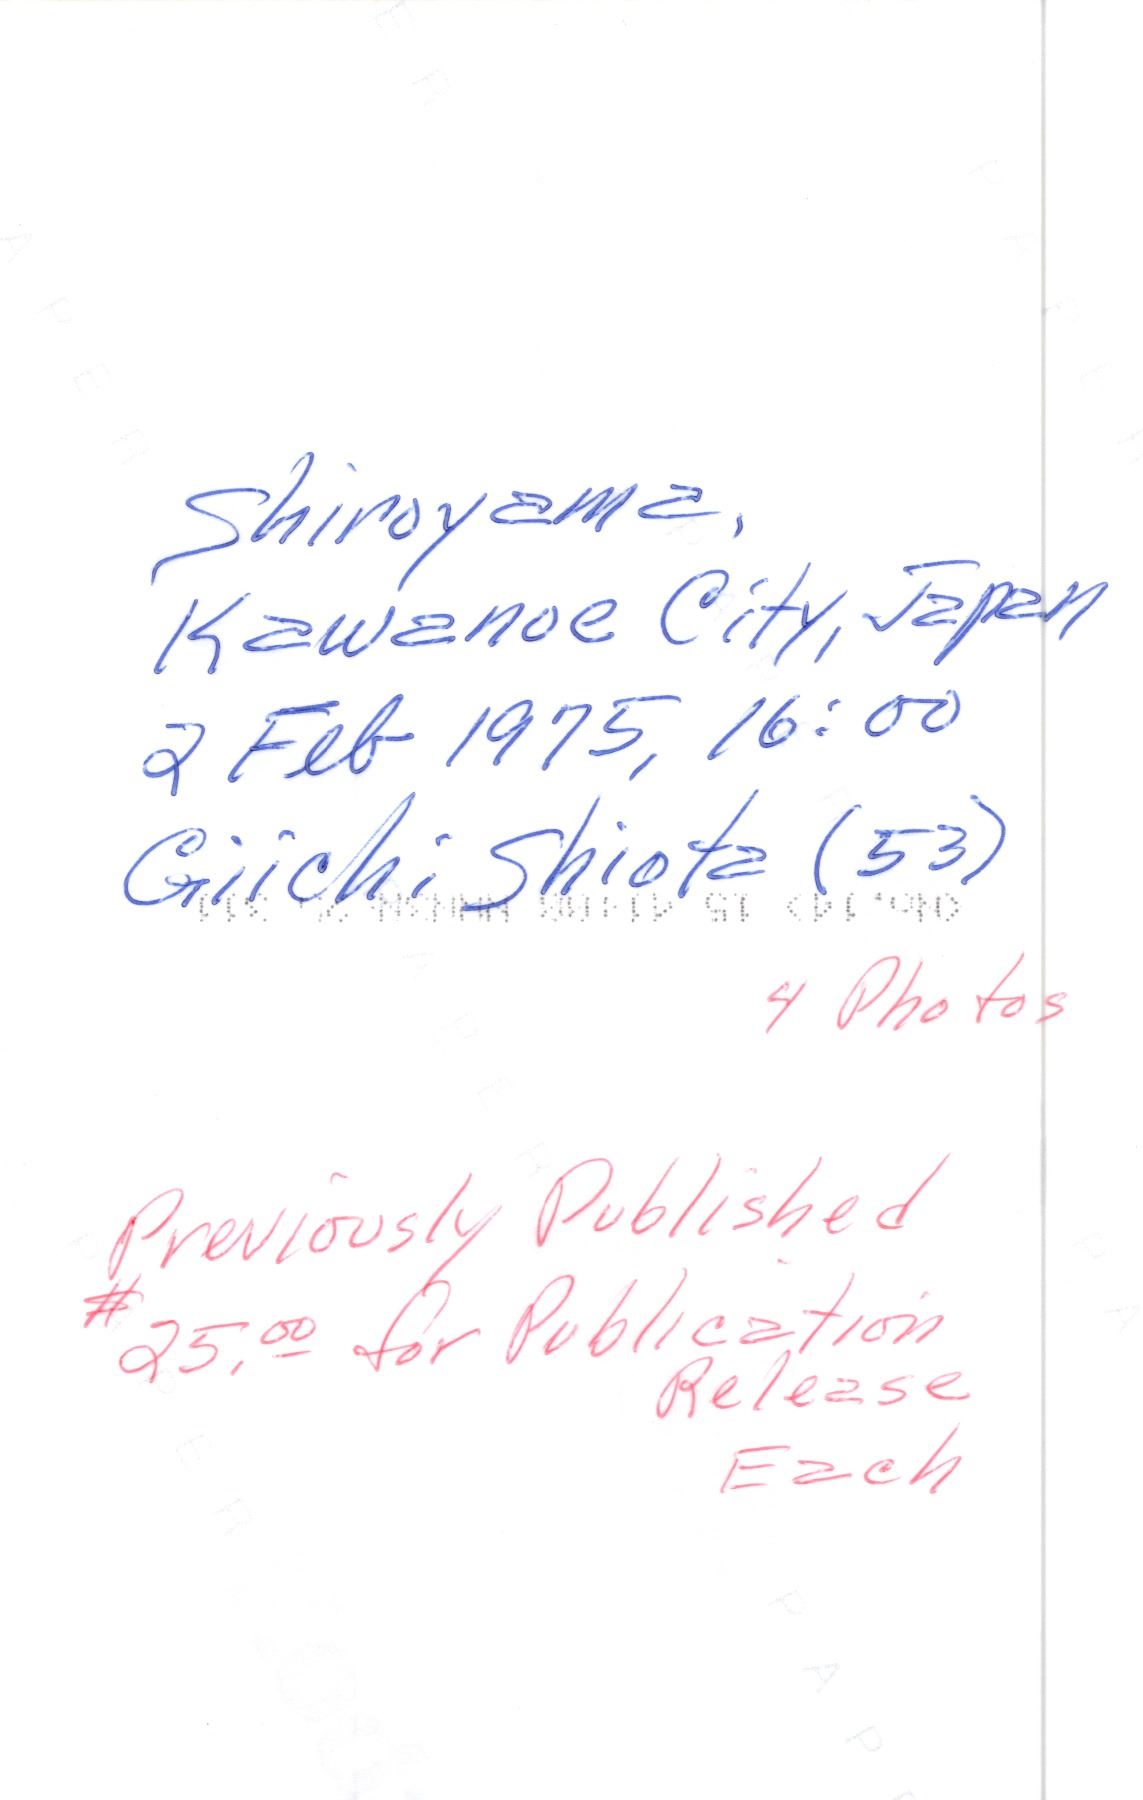 Shiroyama,
Kawanoe City, Japan
2 Feb 1975, 16:00
Giichi Shiota (53)
4 Photos
Previously Published
#25.00 for Publication
Release
Each